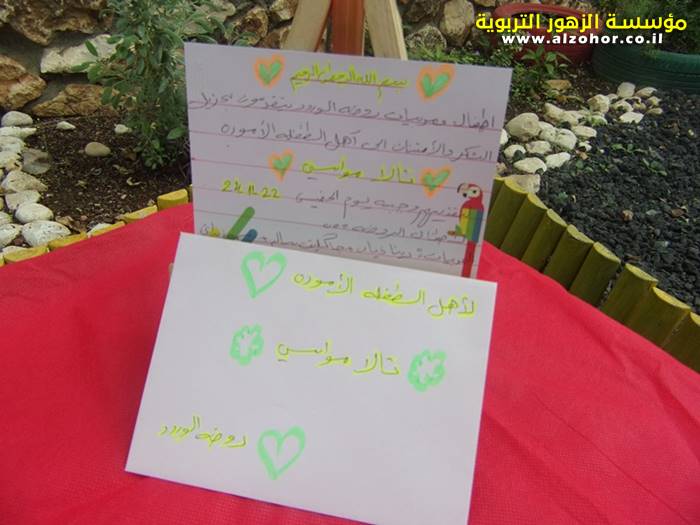 مؤسسة الزهور التربوية
www.alzohor.co.il
بسم الله الرحمن الرحيم
اطفال ومربيات روضة الورود يتقدمون بجزيل
الشكر والأمتنان الى أهل الطفله الأموره
تالا مواسي
لتقديمهم وجبه يوم الخميس 24.11.22
لأطفال الروضه
لأهل الطفله الأموره
تالا مواسي
روضة الورود